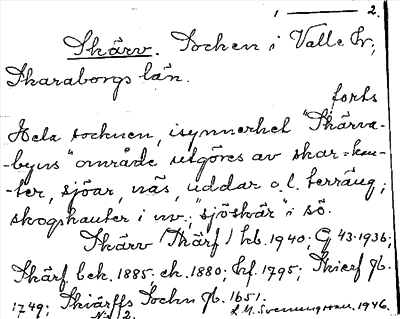 1 ——— 2.
Skärv. Socken i Valle hr;
Skaraborgs län.
forts
Hela socknen, isynnerhet "Skärva-
-byns" område utgöres av skar=kan-
-ter, sjöar, näs, uddar o.l. terräng;
skogskanter i nv.; "sjöskär" i sö.
Skärv (Skärf) hb. 1940; G 43-1936;
Skärf bek. 1885; ek. 1880; hf. 1795; Skierf jb.
1749; Skiärffs Sochn jb. 1651.
2. 1946.